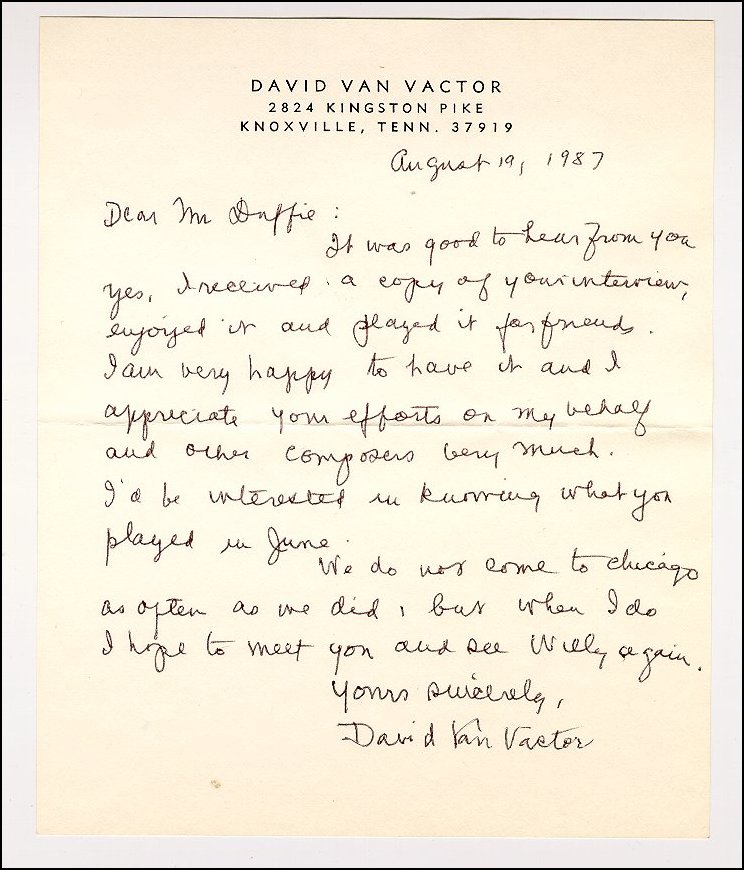 DAVID VAN VACTOR
2824 KINGSTON PIKE
KNOXVILLE, TENN. 37919
August 19, 1987
Dear Mr Duffie :
It was good to hear from you
yes, I received a copy of your interview,
enjoyed it and played it for friends.
I am very happy to have it and I
appreciate your efforts on my behalf
and other composers very much.
I'd be interested in knowing what you
played in June.
We do not come to Chicago
as often as we did, but when I do
I hope to meet you and see Willy again.
Yours sincerely,
David Van Vactor